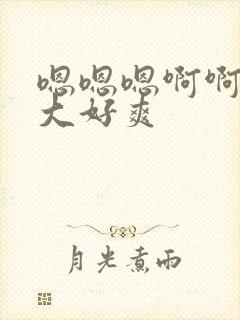 嗯嗯嗯啊啊
大好爽
月光煮雨